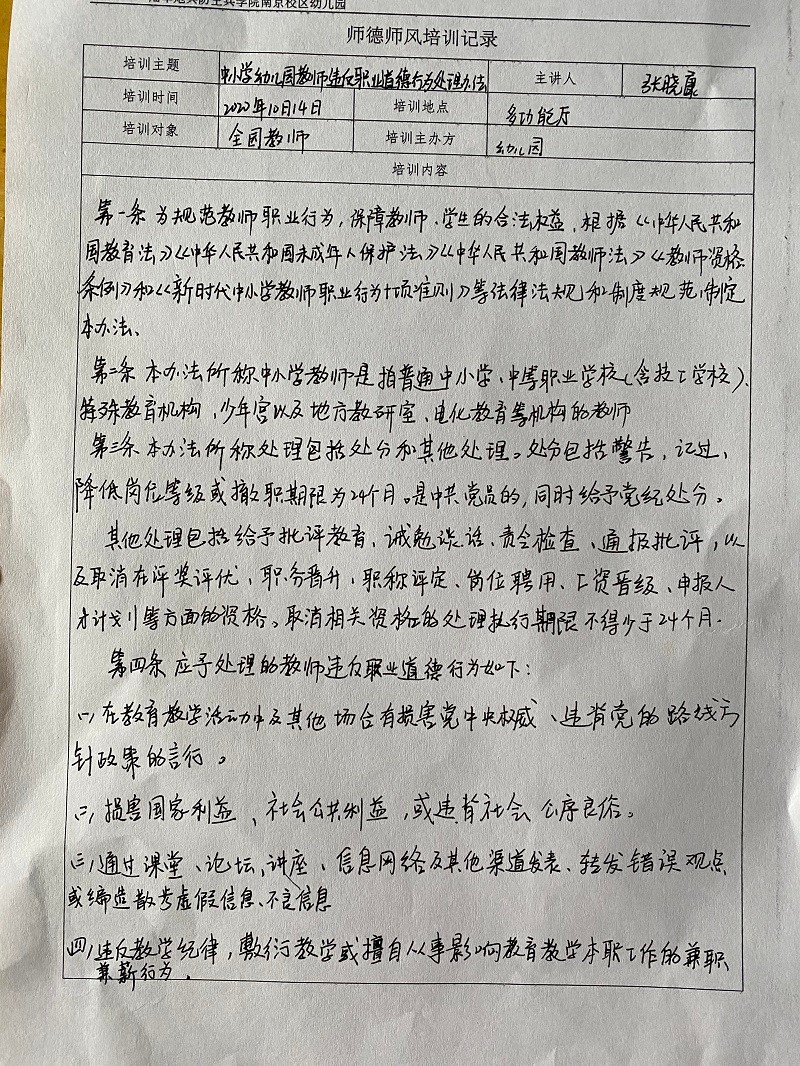 陆军炮兵防空兵学院南京校区幼儿园
师德师风培训记录
培训主题 中小学幼儿园教师违反职业道德行为处理办法 主讲人 张晓康
培训时间 2020年10月14日 培训地点 多功能厅
培训对象 全园教师 培训主办方 幼儿园
培训内容
第一条 为规范教师职业行为,保障教师、学生的合法权益,根据《中华人民共和
国教育法》《中华人民共和国未成年人保护法》《中华人民共和国教师法》《教师资格
条例》和《新时代中小学教师职业行为十项准则》等法律法规和制度规范,制定
本办法、
第二条 本办法所称中小学教师是指普通中小学、中等职业学校(含技工学校)、
特殊教育机构,少年宫以及地方教研室、电化教育等机构的教师
第三条 本办法所称处理包括处分和其他处理。处分包括警告,记过,
降低岗位等级或撤职期限为24个月。是中共党员的,同时给予党纪处分。
其他处理包括给予批评教育、诫勉谈话、责令检查、通报批评,以
及取消在评奖评优、职务晋升、职称评定、岗位聘用、工资晋级、申报人
才计划等方面的资格。取消相关资格的处理执行期限不得少于24个月.
第四条 应予处理的教师违反职业道德行为如下:
(一)在教育教学活动中及其他场合有损害党中央权威、违背党的路线方
针政策的言行。
(二)损害国家利益、社会公共利益,或违背社会公序良俗。
(三)通过课堂、论坛、讲座、信息网络及其他渠道发表、转发错误观点
或编造散布虚假信息、不良信息
(四)违反教学纪律,敷衍教学或擅自从事影响教育教学本职工作的兼职
兼薪行为.